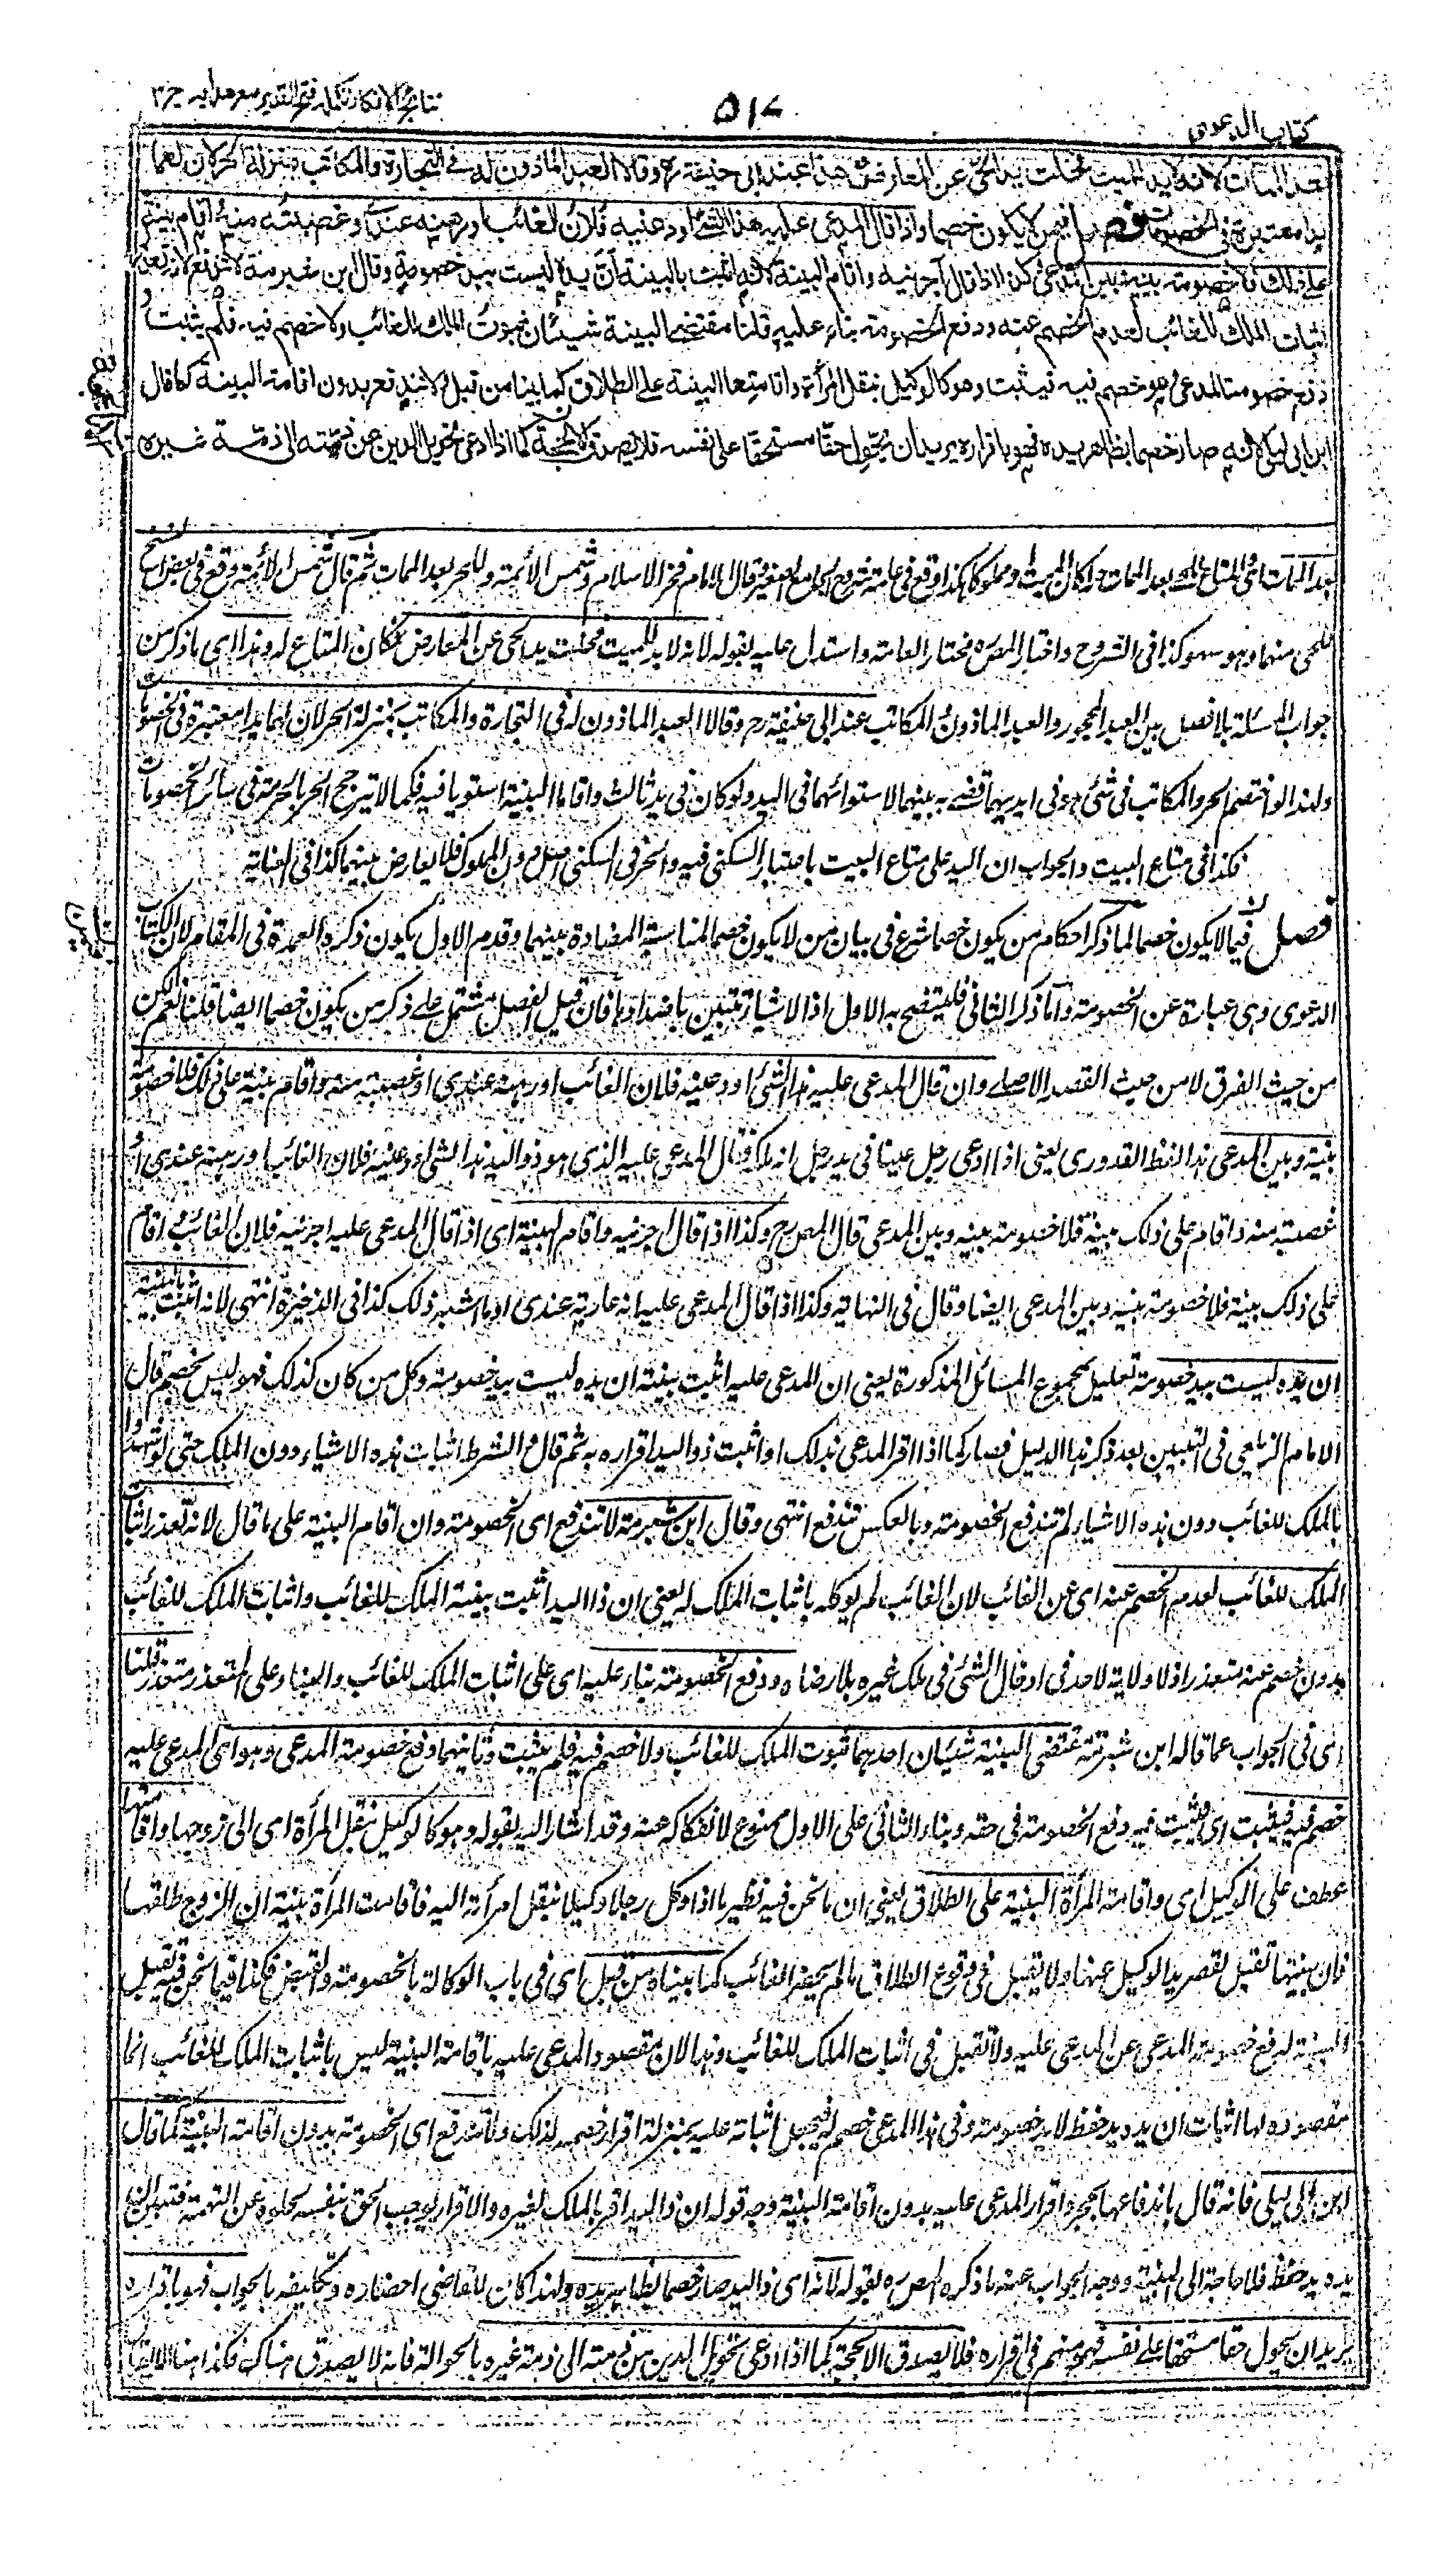 كتاب الدعوى
۵۱۷
نتائج الافكار تكملہ فتح القدير مع هدايہ ج ۳
بعد الممات لانه لا يد للميت فخلت يد الحي عن المعارض هذا عند ابي حنيفة رح وقالا العبد الماذون له في التجارة والمكاتب بمنزلة الحر لان لهما
يدا معتبرة في الخصومات فصل فيمن لا يكون خصما واذا قال المدعى عليه هذا الشئ اودعنيه فلان الغائب او رهنه عندي او غصبته منه واقام بينة
على ذلك فلا خصومة بينه وبين المدعي وكذا اذا قال آجرنيه واقام البينة لانه اثبت بالبينة ان يده ليست بيد خصومة وقال ابن شبرمة لا تندفع لانه تعذر
اثبات الملك للغائب لعدم الخصم عنه ودفع الخصومة بناء عليه قلنا مقتضى البينة شيئان ثبوت الملك للغائب ولا خصم فيه فلم يثبت و
دفع خصومة المدعي وهو خصم فيه فيثبت وهو كالوكيل بنقل المرأة واقامتها البينة على الطلاق كما بينا من قبل ولا تندفع بدون اقامة البينة كما قال
ابن ابي ليلى لانه صار خصما بظاهر يده فهو باقراره يريد ان يحول حقا مستحقا على نفسه فلا يصدق الا بحجة كما اذا ادعى تحويل الدين من ذمته الى ذمة غيره
بعد الممات اي المتاع للحي بعد الممات حرا كان الميت او مملوكا هكذا وقع في عامة شروح الجامع الصغير وقال الامام فخر الاسلام وشمس الائمة وللحر بعد الممات ثم قال شمس الائمة وقع في بعض النسخ
للحي منهما وهو سهو كذا في الشروح واختار المص ره مختار العامة واستدل عليه بقوله لانه لا يد للميت فخلت يد الحي عن المعارض فكان المتاع له وهذا اي ما ذكر من
جواب المسئلة بلا فصل بين العبد المحجور والعبد الماذون والمكاتب عند ابي حنيفة رح وقالا العبد الماذون له في التجارة والمكاتب بمنزلة الحر لان لهما يدا معتبرة في الخصومات
ولهذا لو اختصم الحر والمكاتب في شئ هو في ايديهما قضى به بينهما لاستوائهما في اليد ولو كان في يد ثالث واقاما البينة استويا فيه فكما لا يترجح الحر بالحرية في سائر الخصومات
فكذا في متاع البيت والجواب ان اليد على متاع البيت باعتبار السكنى فيه والحر في السكنى اصل دون المملوك فلا يعارض بينهما كذا في العناية
فصل فيما لا يكون خصما لما ذكر احكام من يكون خصما شرع في بيان من لا يكون خصما لمناسبة المضادة بينهما وقدم الاول لكون ذكره العمدة في المقام لان الكتاب كتاب
الدعوى وهي عبارة عن الخصومة واما ذكر الثاني فليتضح به الاول اذ الاشياء تتبين باضدادها فان قيل الفصل مشتمل على ذكر من يكون خصما ايضا قلنا نعم لكن
من حيث الفرق لا من حيث القصد الاصلي وان قال المدعى عليه هذا الشئ اودعنيه فلان الغائب او رهنه عندي او غصبته منه واقام بينة على ذلك فلا خصومة
بينه وبين المدعي هذا لفظ القدوري يعني اذا ادعى رجل عينا في يد رجل انه ملكه فقال المدعى عليه الذي هو ذو اليد هذا الشئ اودعنيه فلان الغائب او رهنه عندي او
غصبته منه واقام على ذلك بينة فلا خصومة بينه وبين المدعي قال المص رح وكذا اذا قال آجرنيه واقام البينة اي اذا قال المدعى عليه آجرنيه فلان الغائب واقام
على ذلك بينة فلا خصومة بينه وبين المدعي ايضا وقال في النهاية وكذا اذا قال المدعى عليه انه عارية عندي او ما اشبه ذلك كذا في الذخيرة انتهى لانه اثبت بالبينة
ان يده ليست بيد خصومة تعليل لمجموع المسائل المذكورة يعني ان المدعى عليه اثبت ببينة ان يده ليست بيد خصومة وكل من كان كذلك فهو ليس بخصم قال
الامام الزيلعي في التبيين بعد ذكر هذا الدليل فصار كما اذا اقر المدعي بذلك او اثبت ذو اليد اقراره به ثم قال والشرط اثبات هذه الاشياء دون الملك حتى لو شهدوا
بالملك للغائب دون هذه الاشياء لم تندفع الخصومة وبالعكس تندفع انتهى وقال ابن شبرمة لا تندفع اي الخصومة وان اقام البينة على ما قال لانه تعذر اثبات
الملك للغائب لعدم الخصم عنه اي عن الغائب لان الغائب لم يوكله باثبات الملك له يعني ان ذا اليد اثبت ببينة الملك للغائب واثبات الملك للغائب
بدون خصم عنه متعذر اذ لا ولاية لاحد في ادخال الشئ في ملك غيره بلا رضاه ودفع الخصومة بناء عليه اي على اثبات الملك للغائب والبناء على المتعذر متعذر قلنا
اي في الجواب عما قاله ابن شبرمة مقتضى البينة شيئان احدهما ثبوت الملك للغائب ولا خصم فيه فلم يثبت وثانيهما دفع خصومة المدعي وهو اي المدعى عليه
خصم فيه فيثبت اي فيثبت فيه دفع الخصومة في حقه وبناء الثاني على الاول ممنوع لانفكاكه عنه وقد اشار اليه بقوله وهو كالوكيل بنقل المرأة اي الى زوجها واقامتها
عطف على الوكيل اي واقامة المرأة البينة على الطلاق يعني ان ما نحن فيه نظير ما اذا وكل رجلا وكيلا بنقل امرأته اليه فاقامت المرأة بينة ان الزوج طلقها
فان بينتها تقبل لقصر يد الوكيل عنها ولا تقبل في وقوع الطلاق ما لم يحضر الغائب كما بيناه من قبل اي في باب الوكالة بالخصومة والقبض فكذا فيما نحن فيه تقبل
البينة لدفع خصومة المدعي عن المدعى عليه ولا تقبل في اثبات الملك للغائب وهذا لان مقصود المدعى عليه باقامة البينة ليس باثبات الملك للغائب انما
مقصوده بها اثبات ان يده يد حفظ لا يد خصومة وفي هذا المدعي خصم له فيجعل اثباته عليه بمنزلة اقرار خصمه بذلك ولا تندفع اي الخصومة بدون اقامة البينة كما قال
ابن ابي ليلى فانه قال باندفاعها بمجرد اقرار المدعى عليه بدون اقامة البينة وجه قوله ان ذا اليد اقر بالملك لغيره والاقرار يوجب الحق بنفسه لخلوه عن التهمة فتبين ان
يده يد حفظ فلا حاجة الى البينة ووجه الجواب عنه ما ذكره المص ره بقوله لانه اي ذا اليد صار خصما بظاهر يده ولهذا كان للقاضي احضاره وتكليفه بالجواب فهو باقراره
يريد ان يحول حقا مستحقا على نفسه فهو متهم في اقراره فلا يصدق الا بحجة كما اذا ادعى تحويل الدين من ذمته الى ذمة غيره بالحوالة فانه لا يصدق هناك فكذا هنا